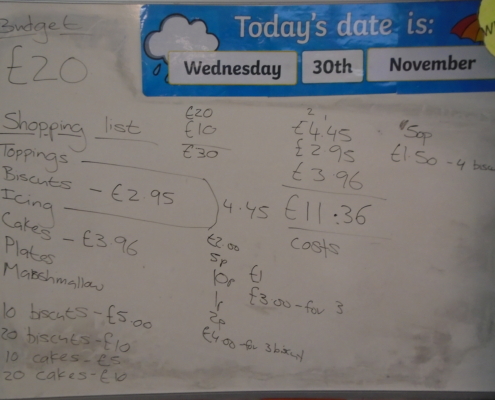 Budget
£20
Today's date is:
Wednesday 30th November
Shopping list
Toppings
Biscuts - £2.95
Icing
Cakes - £3.96
Plates
Marshmallow
10 biscuts - £5.00
20 biscuts - £10
10 cakes - £5
20 cakes - £10
£20
£10
£30
4.45
2 1
£4.45
£2.95
£3.96
£11.36
costs
50p
£1.50 - 4
£2.00
5p
10p
1p
2p
£4.00 - for 3
£1
£3.00 - for 3